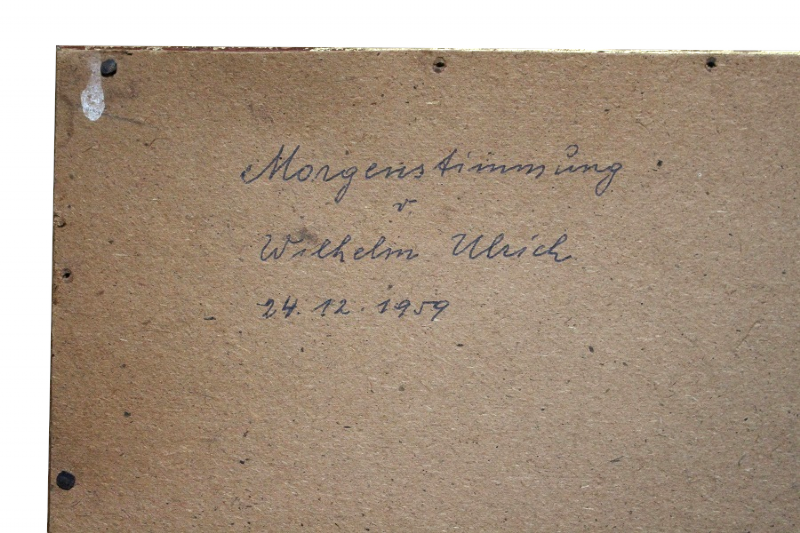 Morgenstimmung
v
Wilhelm Ulrich
24.12.1959